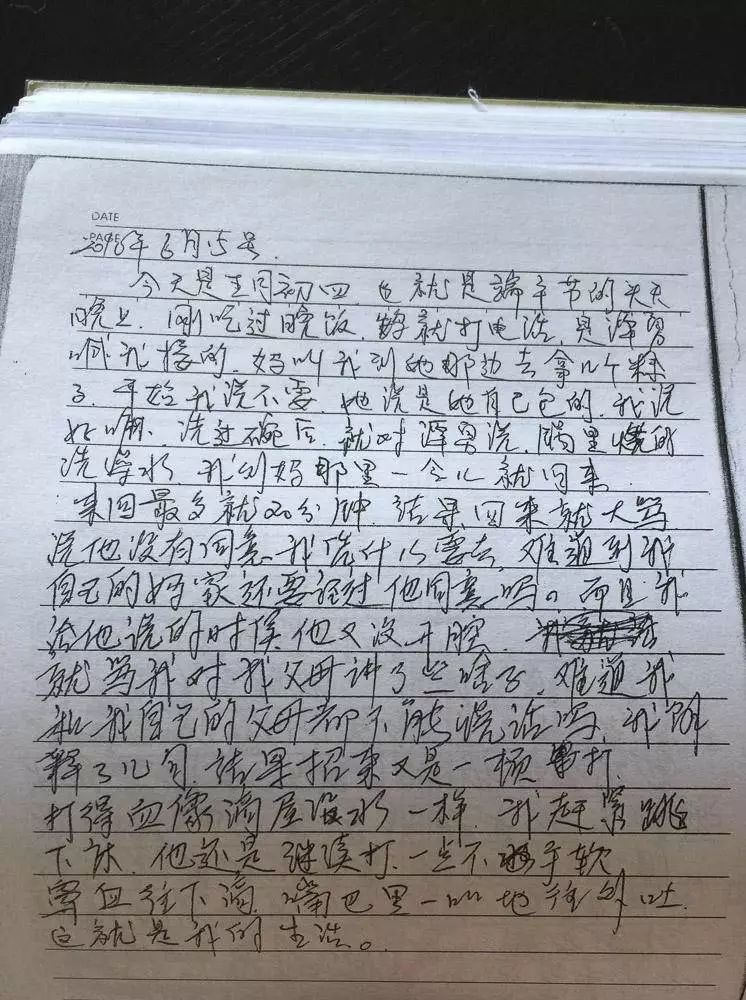 DATE
PAGE
年6月15号.
今天是五月初四.也就是端午节的头天
晚上.刚吃过晚饭.妈就打电话.是
接的.妈叫我到她那边去拿几个粽
子.开始我说不要.她说是她自己包的.我说
好嘛.洗过碗后.就对说.锅里烧的
洗澡水.我到妈那里一会儿就回来.
来回最多就20分钟.结果.回来就大骂.
说他没有同意.我凭什么要去.难道到我
自己的妈家还要经过他同意吗。而且我
给他说的时候.他又没开腔.
就骂我对我父母讲了些啥子.难道我
和我自己的父母都不能说话吗.我解
释了几句.结果招来又是一顿打.
打得血像滴屋水一样.我赶紧跳
下床.他还是继续打.一点不手软
血往下滴.嘴巴里一口地往外吐.
这就是我的生活。